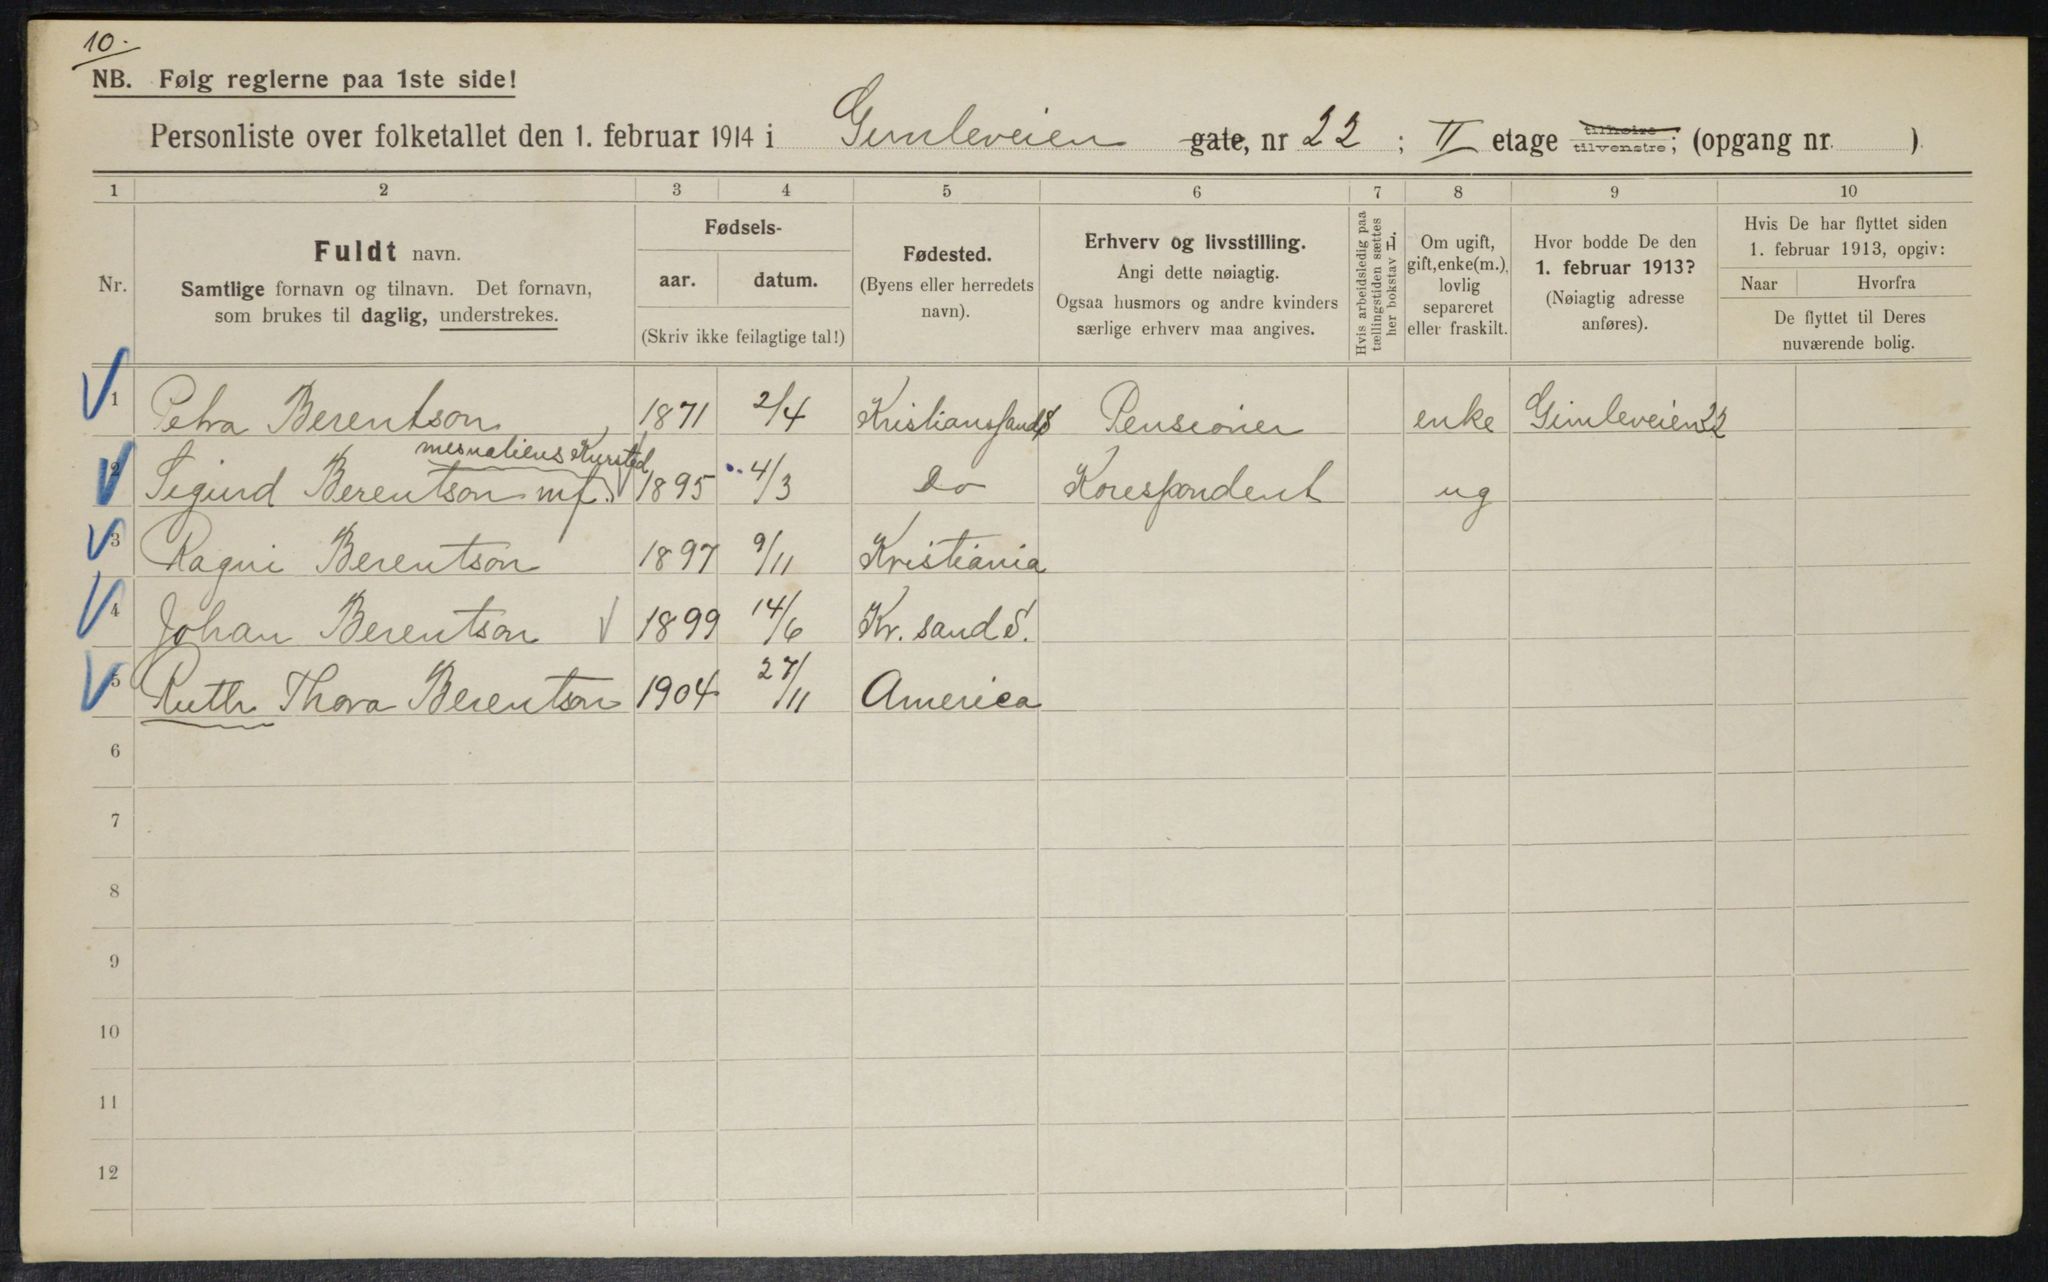 10.
NB. Følg reglerne paa 1ste side!
Personliste over folketallet den 1. februar 1914 i Gimleveien gate, nr 22 ; II etage tilhøire tilvenstre; (opgang nr. )
1 2 3 4 5 6 7 8 9 10
Nr.
Fuldt navn.
Samtlige fornavn og tilnavn. Det fornavn,
som brukes til daglig, understrekes.
Fødsels-
aar. datum.
(Skriv ikke feilagtige tal!)
Fødested.
(Byens eller herredets
navn).
Erhverv og livsstilling.
Angi dette nøiagtig.
Ogsaa husmors og andre kvinders
særlige erhverv maa angives.
Hvis arbeidsledig paa
tællingstiden sættes
her bokstav L.
Om ugift,
gift, enke(m.),
lovlig
separeret
eller fraskilt.
Hvor bodde De den
1. februar 1913?
(Nøiagtig adresse
anføres).
Hvis De har flyttet siden
1. februar 1913, opgiv:
Naar Hvorfra
De flyttet til Deres
nuværende bolig.
1 Petra Berentson 1871 2/4 Kristianssand S Pensioner enke Gimleveien 22
mesnaliens Kursted
2 Sigurd Berentson mf. 1895 4/3 Do Korespondent ug
3 Ragni Berentson 1897 9/11 Kristiania
4 Johan Berentson 1899 14/6 Kr. sand S.
5 Ruth Thora Berentson 1904 27/11 America
6
7
8
9
10
11
12